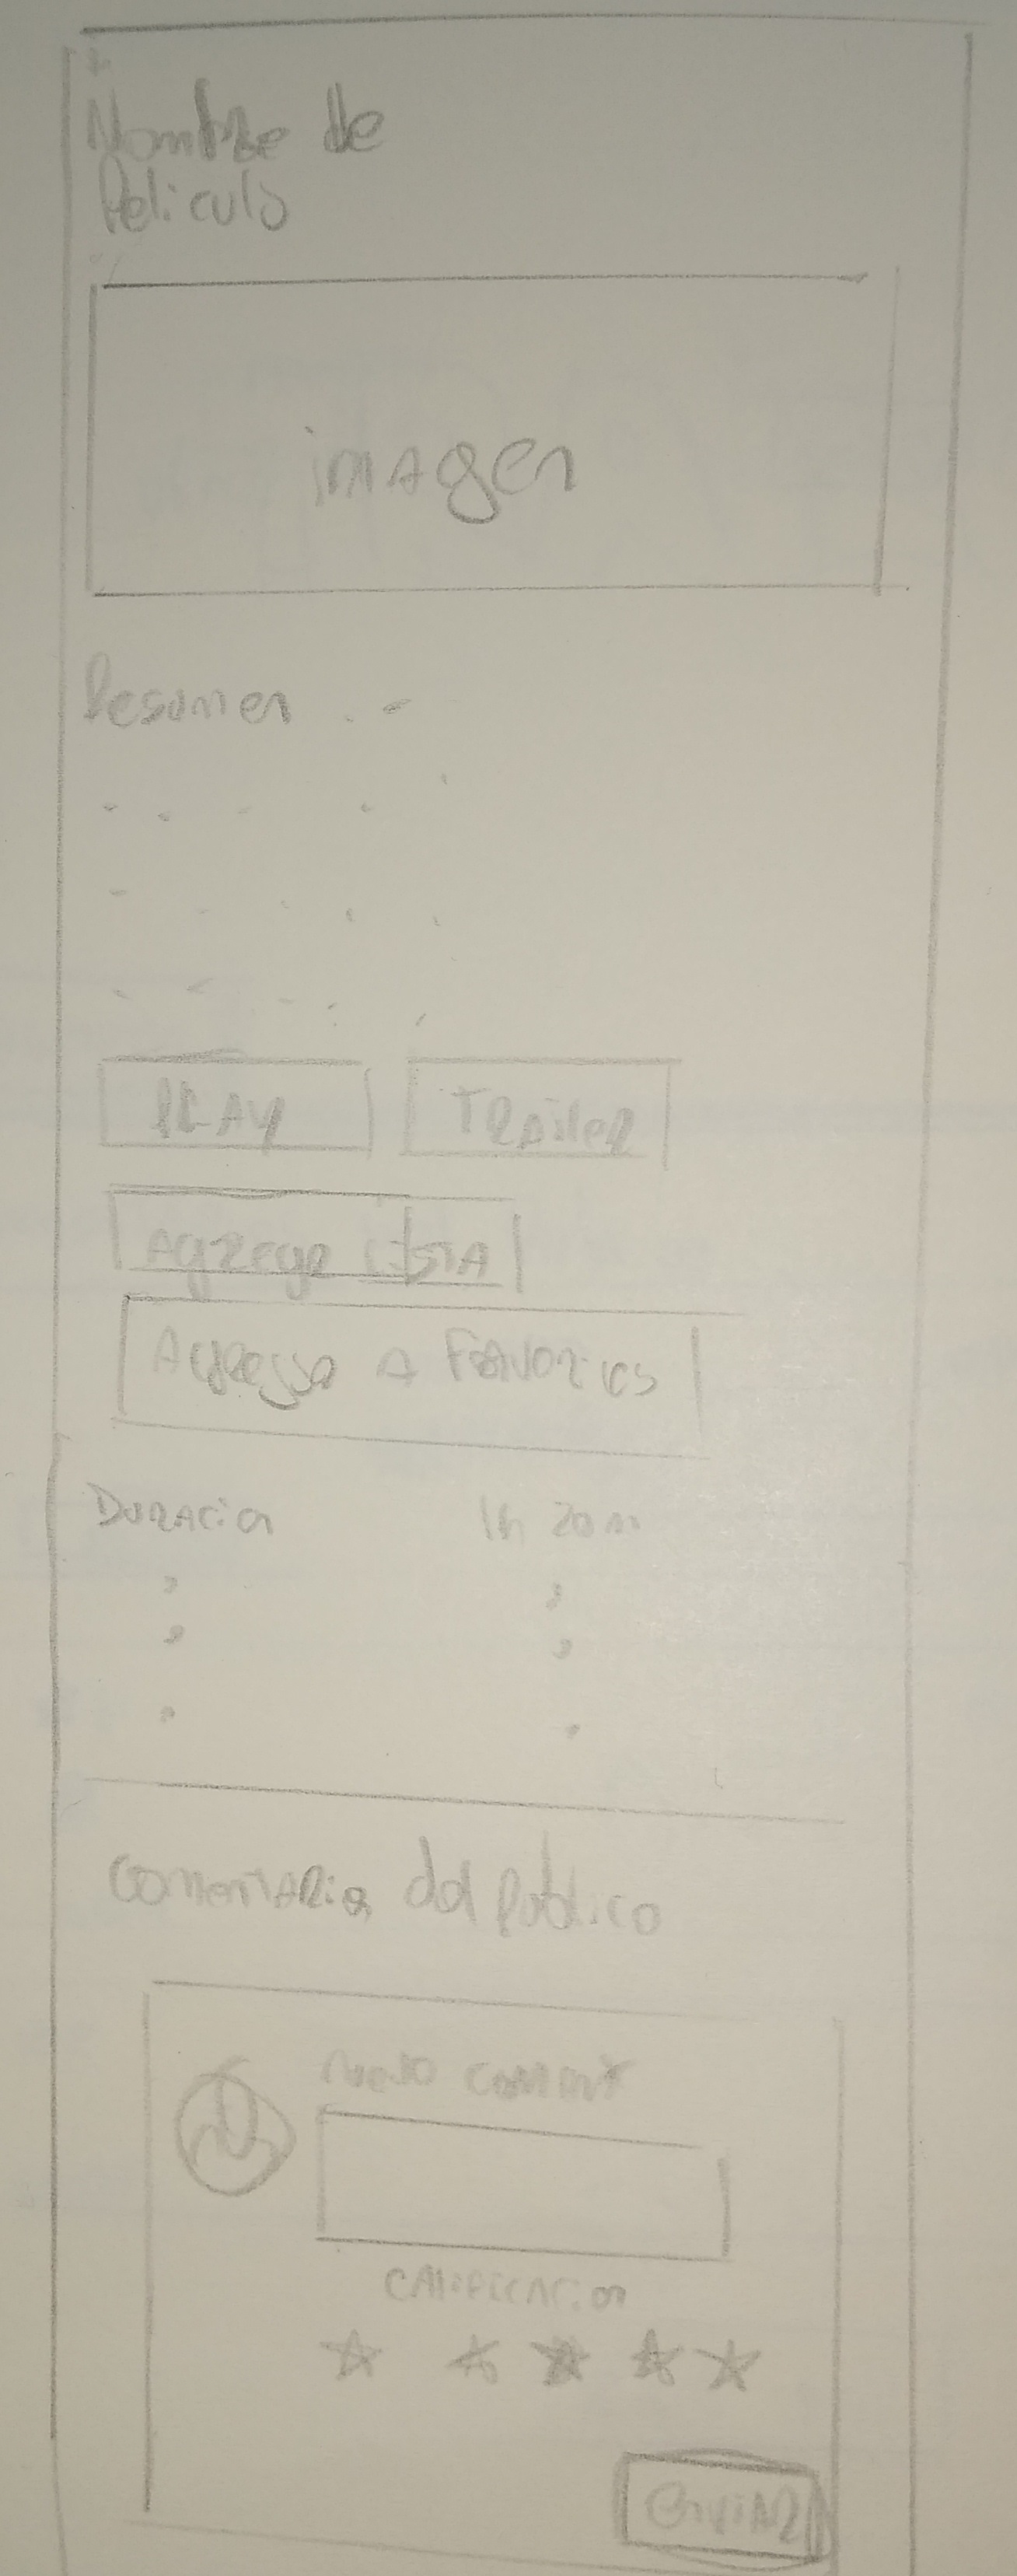 Nombre de
Pelicula
imagen
Resumen
PLAY
Trailer
Agregar Lista
Agregar A Favoritos
Duracion 1h 20m
Comentarios del publico
nuevo coment
CAlificacion
enviAR